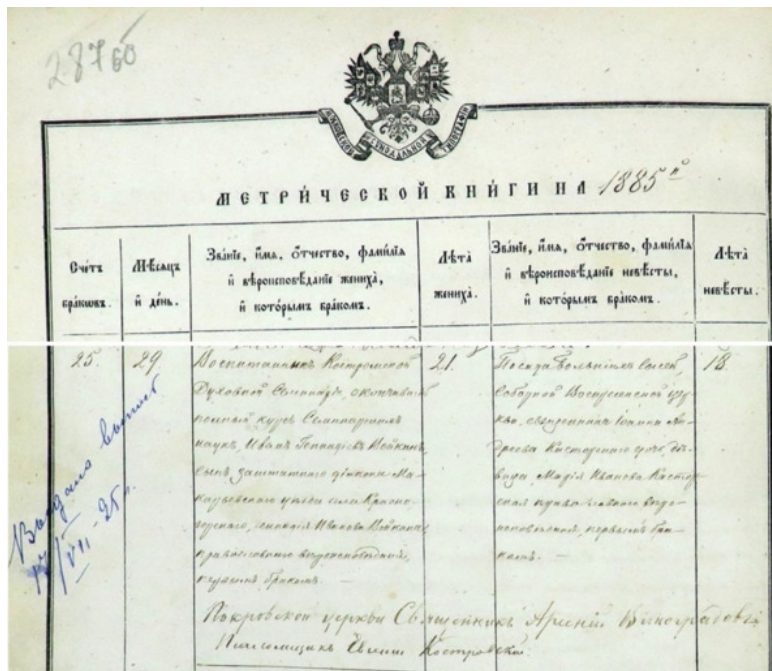 28760
МОСКОВСКОЙ СѴНОДАЛЬНОЙ ТИПОГРАФІИ
МЕТРИ́ЧЕСКОЙ КНИ́ГИ НА 1885 й
Сче́тъ бра́ковъ.
Мѣ́сяцъ и҆ де́нь.
Зва́ніе, и҆́мя, ѻ҆́тчество, фами́лїя
и҆ вѣроисповѣ́данїе жениха̀,
и҆ кото́рымъ бра́комъ.
Лѣта̀ жениха̀.
Зва́ніе, и҆́мя, ѻ҆́тчество, фами́лїя
и҆ вѣроисповѣ́данїе невѣ́сты,
и҆ кото́рымъ бра́комъ.
Лѣта̀ невѣ́сты.
25.
29
Воспитанникъ Костромской
Духовной Семинаріи, окончившій
полный курсъ Семинарскихъ
наукъ, Иванъ Геннадіевъ
сынъ заштатнаго діакона Ма-
карьевскаго уѣзда села Красно-
горскаго, Геннадія Иванова
православнаго вѣроисповѣданія,
первымъ бракомъ. —
21.
Посада
Соборной Воскресенской цер-
кви, священника Іоанна Ан-
дреева Касторскаго дочь, дѣ-
вица Иванова Кастор-
ская православнаго вѣро-
исповѣданія, первымъ бра-
комъ. —
18.
Выдана выпись
17/VII-25 г.
Покровской церкви Священникъ Арсеній Виноградовъ
Псаломщикъ Костровскій.